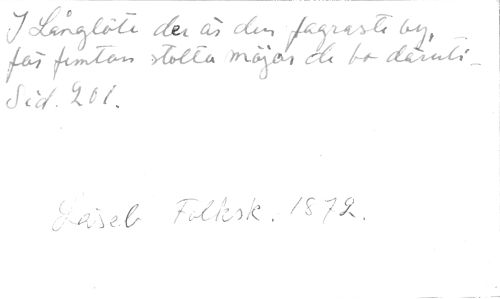 I Långlöte der är den fagraste by,
för femton stolta möjor de bo däruti_
Sid. 201.
Läseb Folksk. 1872.